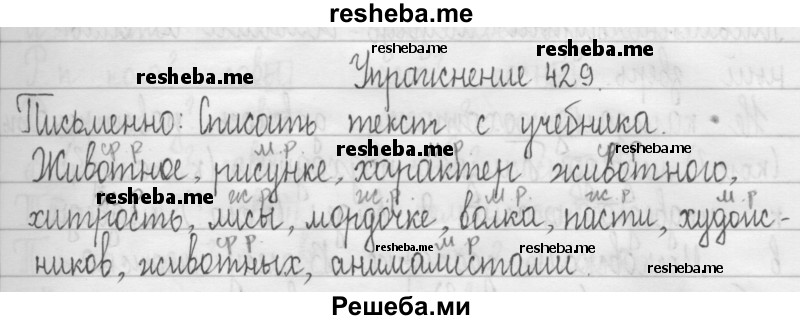 resheba.me
resheba.me
resheba.me
resheba.me
Упражнение 429.
Письменно: Списать текст с учебника.
resheba.me
resheba.me
ср.р. м.р. м.р. ср.р.
Животное, рисунке, характер животного,
resheba.me
ж.р. ж.р. м.р. ж.р. м.р.
хитрость, лисы, мордочке, волка, пасти, худож-
ср.р. м.р.
ников, животных, анималистами.
resheba.me
resheba.me
resheba.me
Решеба.ми